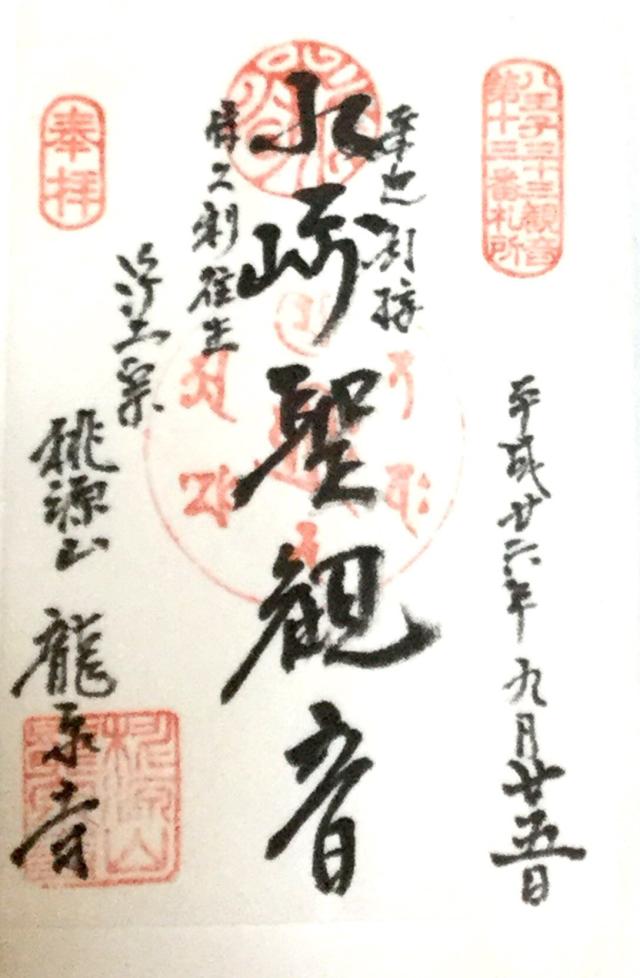 八王子三十三観音
第十三番札所
平成廿六年九月廿五日
水崎聖観音
往生
奉拝
浄土宗
桃源山 龍泉寺
桃源山